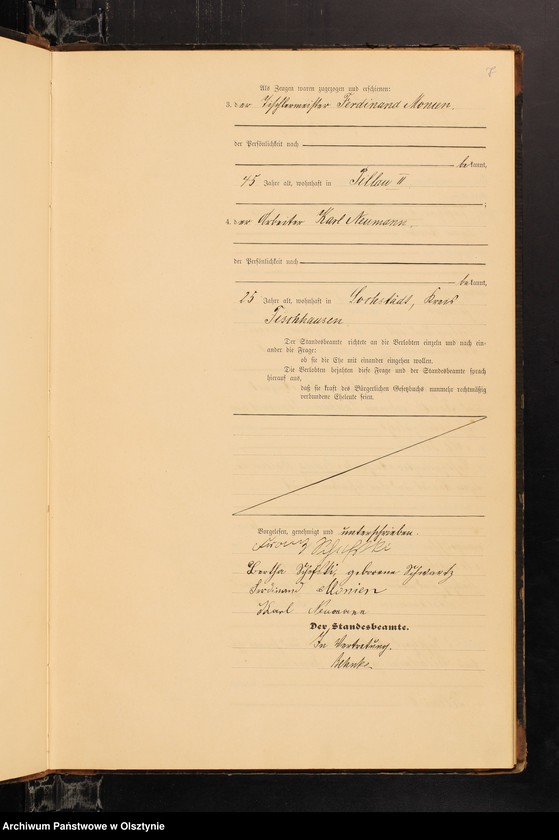 7
Als Zeugen waren zugezogen und erschienen:
3. der Tischlermeister Ferdinand Monien.
der Persönlichkeit nach
bekannt,
45 Jahre alt, wohnhaft in Pillau II
;
4. der Arbeiter Karl Neumann.
der Persönlichkeit nach
bekannt,
25 Jahre alt, wohnhaft in Lochstädt, Kreis
Fischhausen
Der Standesbeamte richtete an die Verlobten einzeln und nach ein-
ander die Frage:
ob sie die Ehe mit einander eingehen wollen.
Die Verlobten bejahten diese Frage und der Standesbeamte sprach
hierauf aus,
daß sie kraft des Bürgerlichen Gesetzbuchs nunmehr rechtmäßig
verbundene Eheleute seien.
Vorgelesen, genehmigt und unterschrieben.
Franz
Bertha geborene Schwartz
Ferdinand Monien
Karl Neumann
Der Standesbeamte.
In Vertretung.
Archiwum Państwowe w Olsztynie